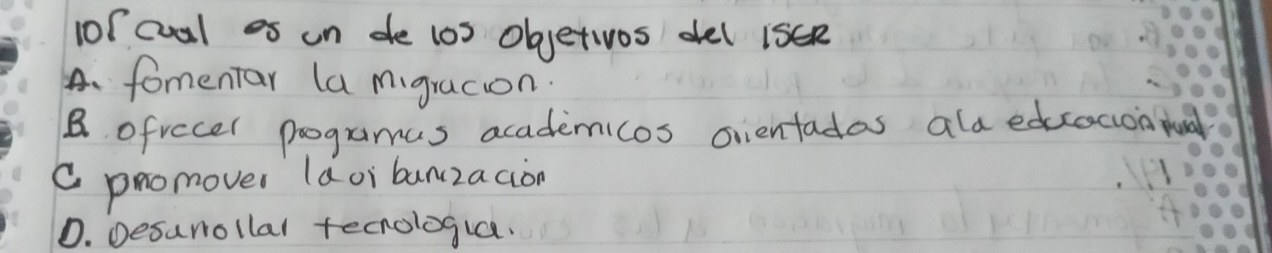 10 cual es un de los objetivos del ISER
A. fomentar la migracion.
B. ofrecer programas académicos orientados a la educación rural.
C promover la oibanización
D. Desarrollar tecnologia.